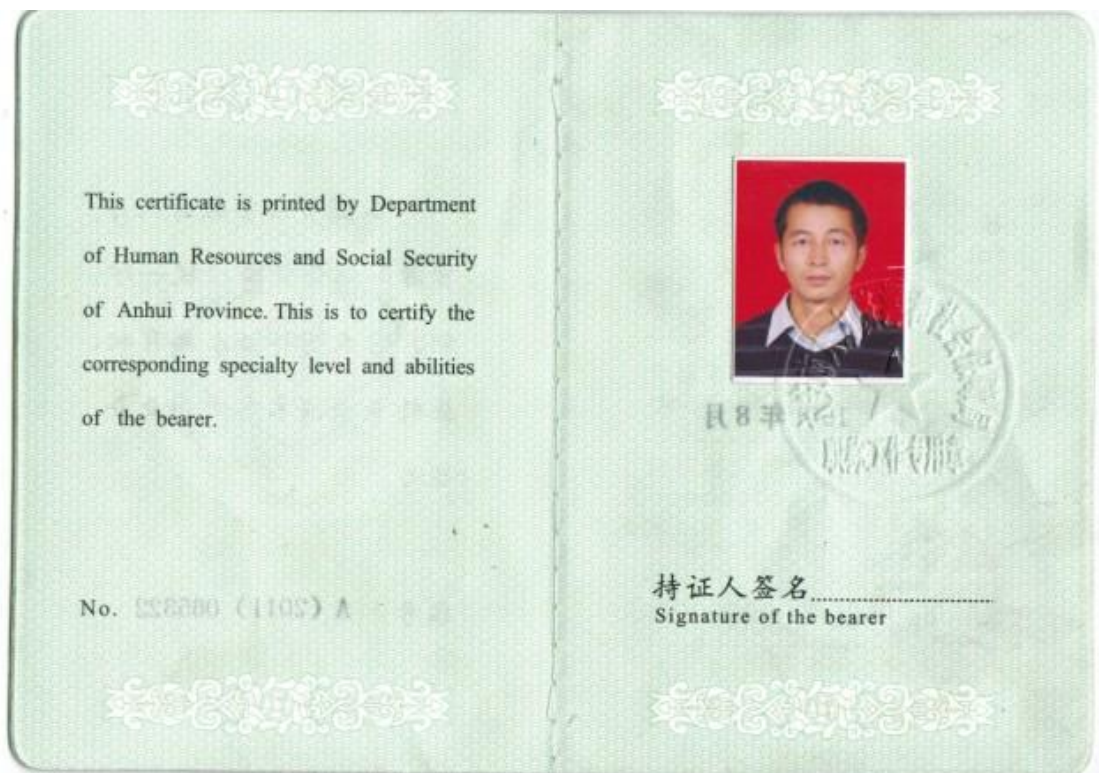 This certificate is printed by Department
of Human Resources and Social Security
of Anhui Province. This is to certify the
corresponding specialty level and abilities
of the bearer.
No.
A (2011) 085322
年8月
持证人签名
Signature of the bearer